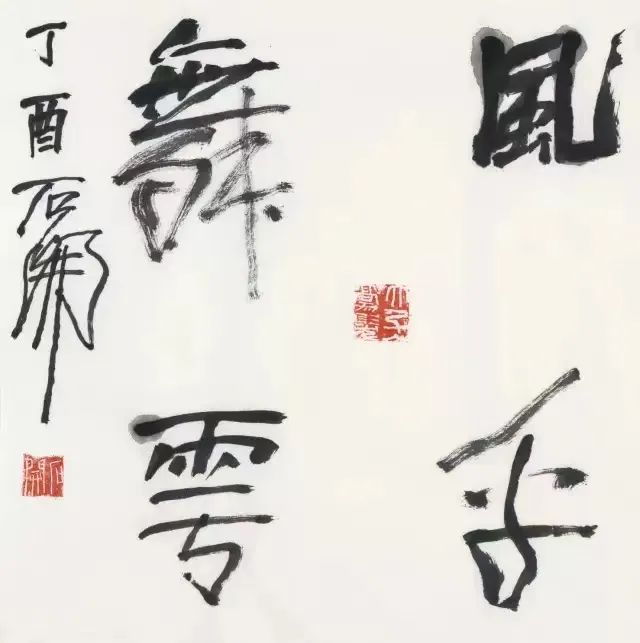 風乎
舞雩
丁酉石開
石開